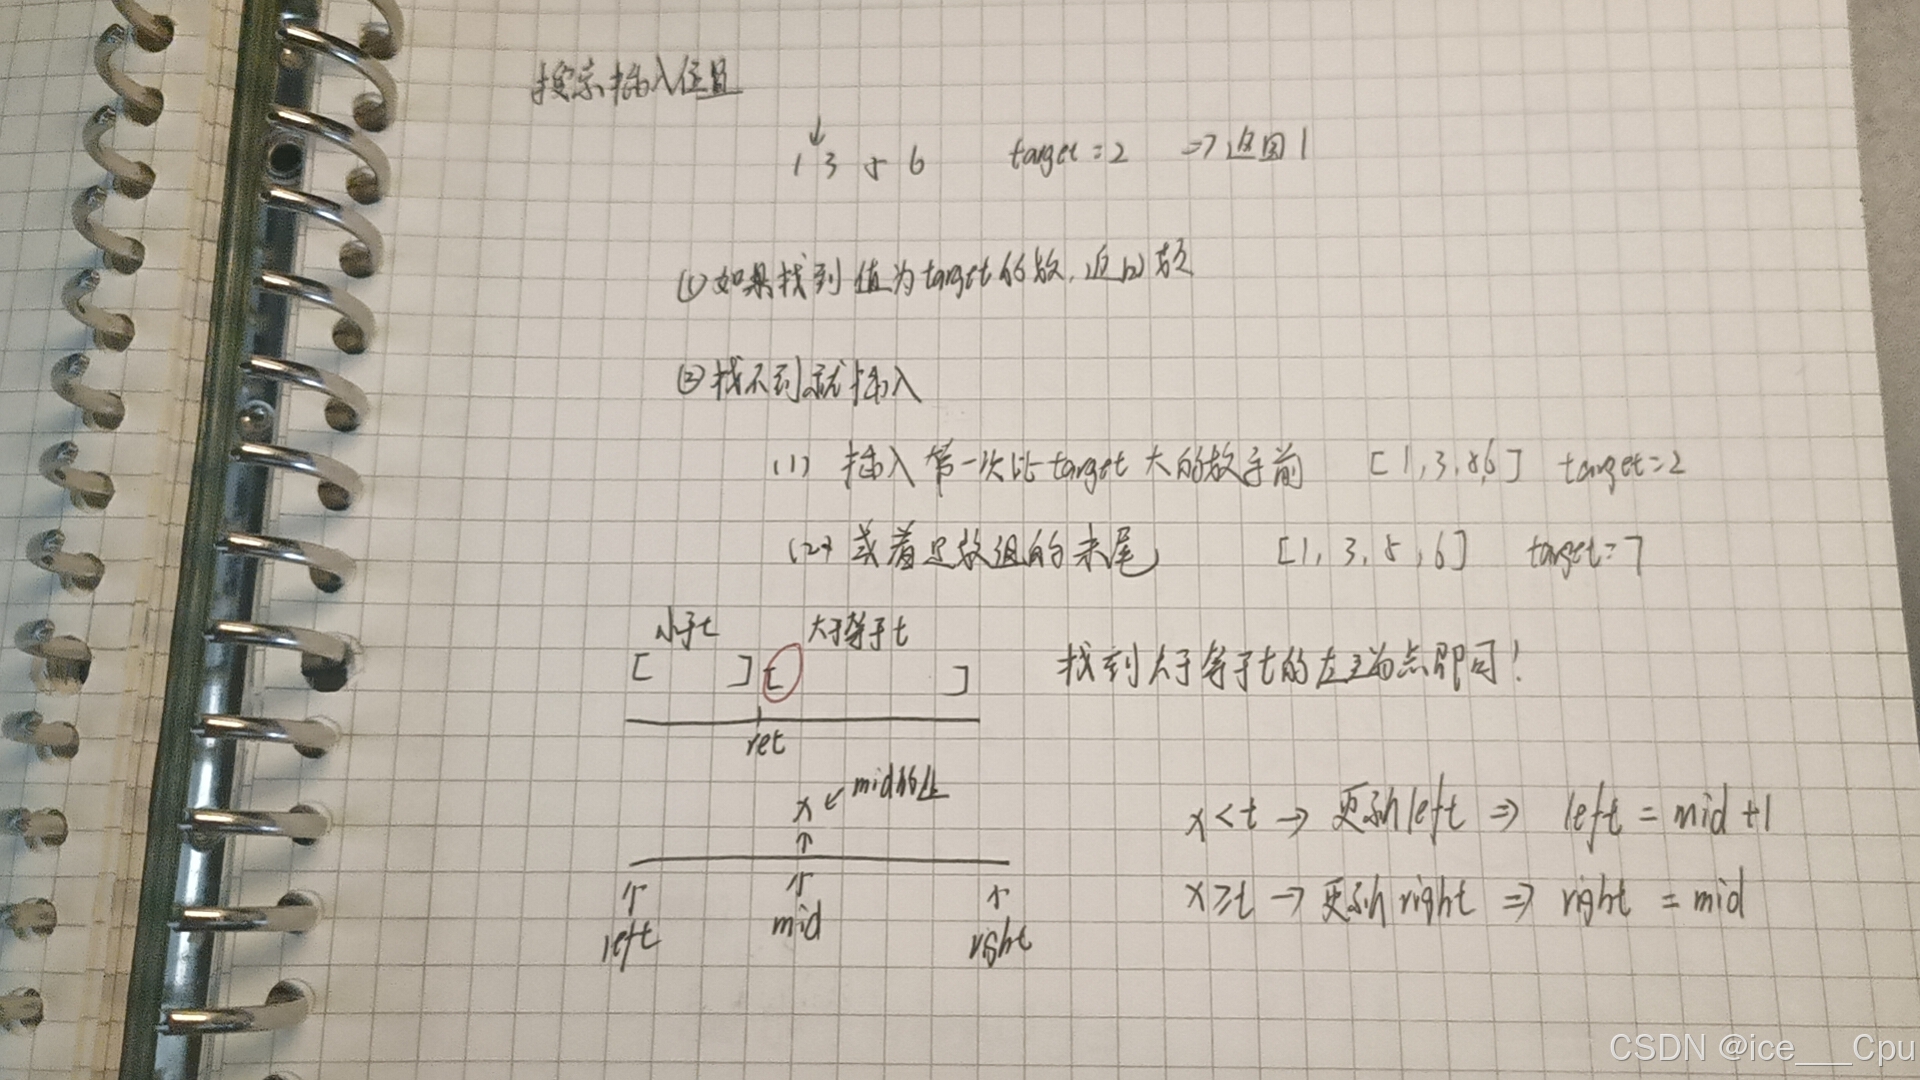 搜索插入位置
↓
1 3 5 6 target=2 => 返回1
① 如果找到值为target的数,返回
② 找不到就插入
(1) 插入第一次比target大的数字前 [1,3,5,6] target=2
(2) 或者是数组的末尾 [1, 3, 5, 6] target=7
小于t 大于等于t
[ ] [ ] 找到大于等于t的左端点即可!
ret
x ← mid的值
x<t → 更新left => left = mid+1
left mid right
x≥t → 更新right => right = mid
CSDN @ice___Cpu